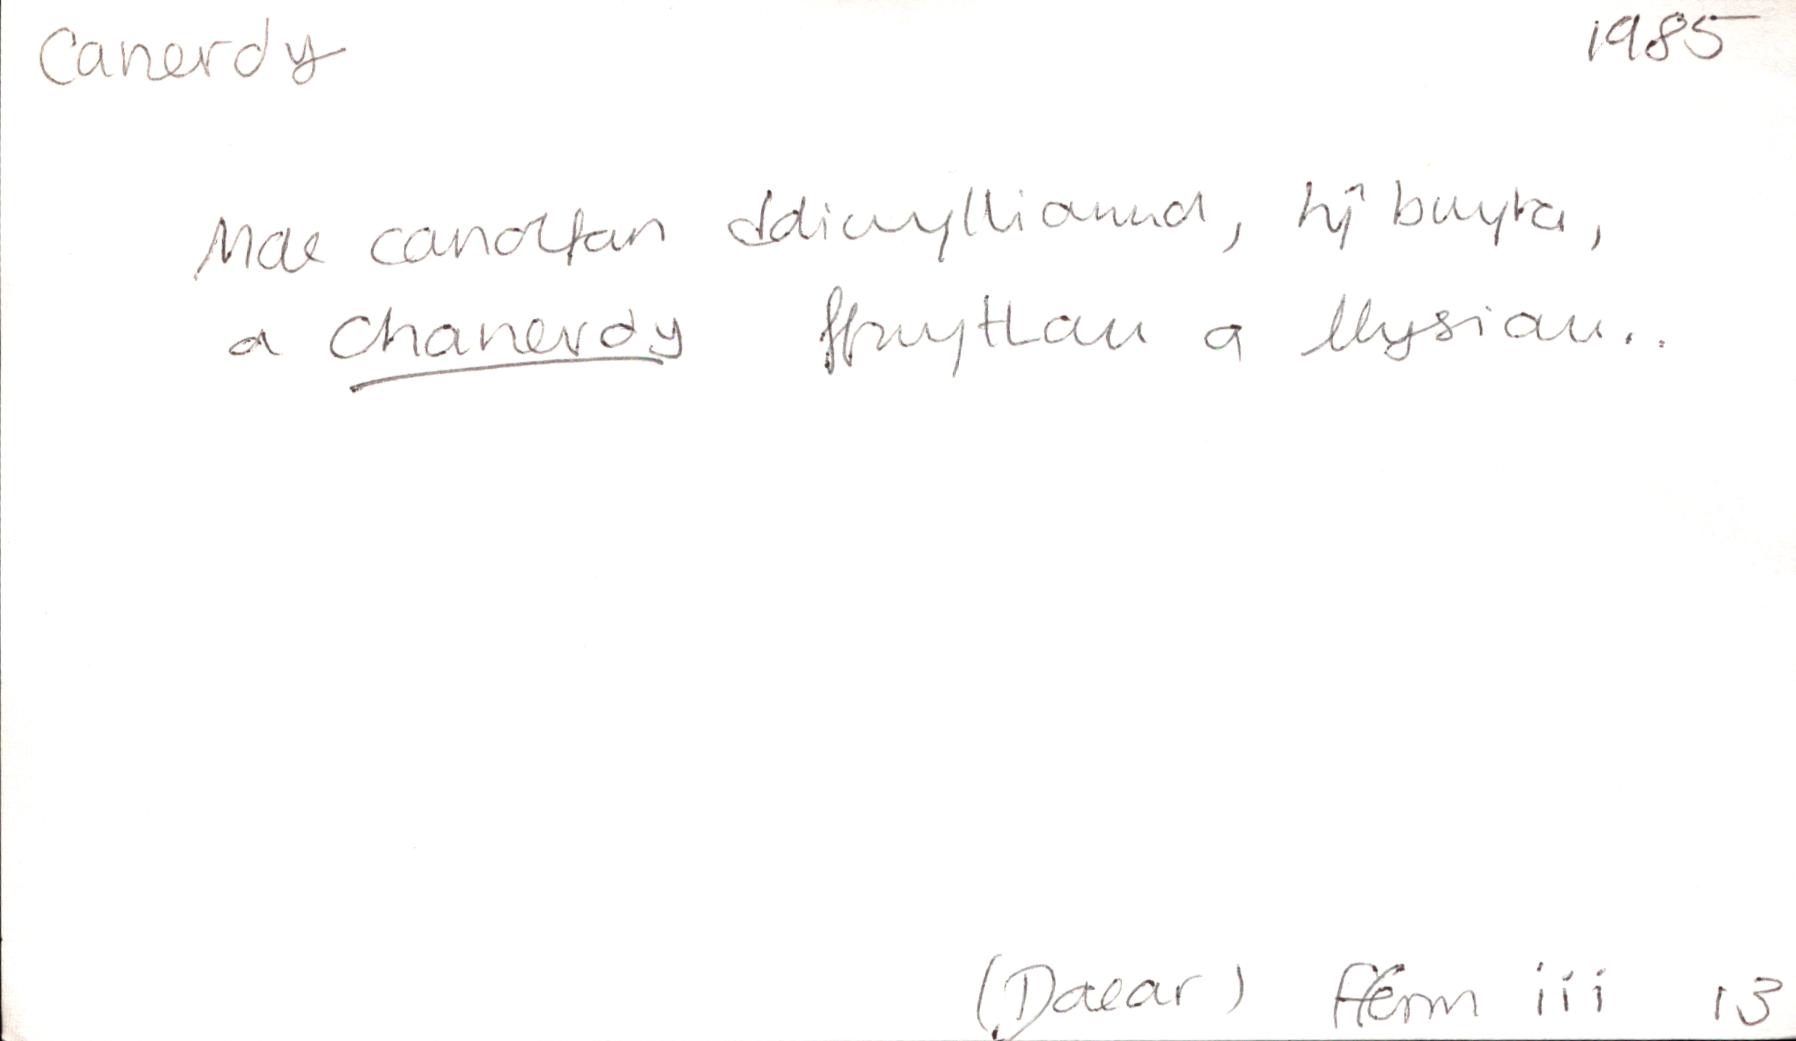 Canerdy 1985
Mae canolfan ddiwylliannol, tŷ bwyta,
a chanerdy ffrwythau a llysiau..
(Daear) fferm iii 13